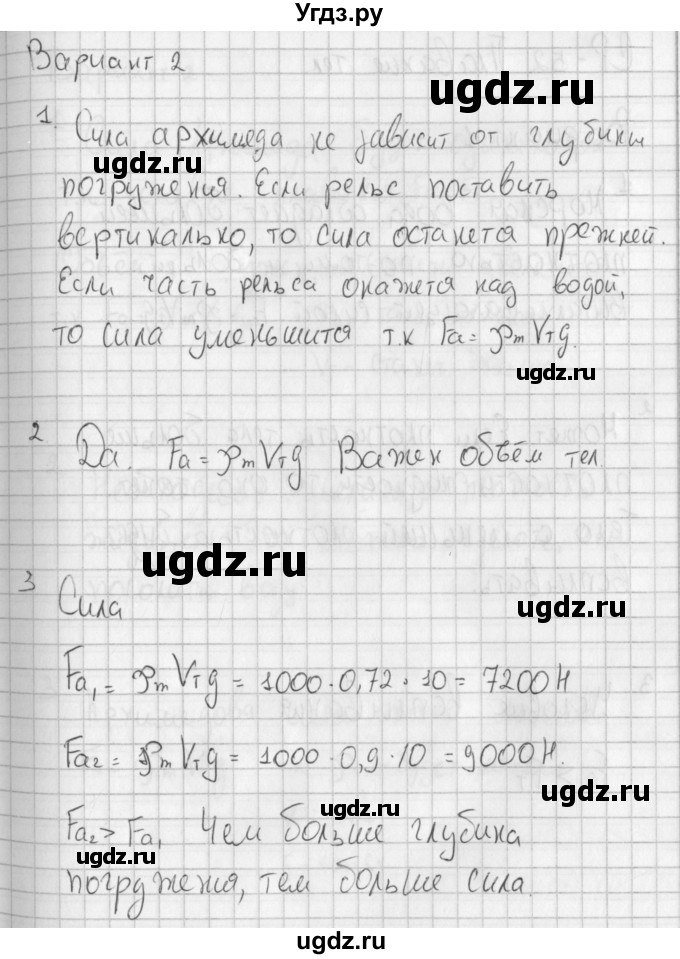 Угдз.ру
Вариант 2
ugdz.ru
1. Сила архимеда не зависит от глубины
ugdz.ru
погружения. Если рельс поставить
вертикально, то сила останется прежней.
Если часть рельса окажется над водой,
то сила уменьшится т.к Fa = ρmVтg.
ugdz.ru
2 Да. Fa = ρmVтg Важен объём тел.
ugdz.ru
3 Сила
ugdz.ru
Fa1 = ρmVтg = 1000·0,72·10 = 7200Н
Fa2 = ρmVтg = 1000·0,9·10 = 9000Н.
ugdz.ru
ugdz.ru
Fa2 > Fa1 Чем больше глубина
ugdz.ru
погружения, тем больше сила.
ugdz.ru